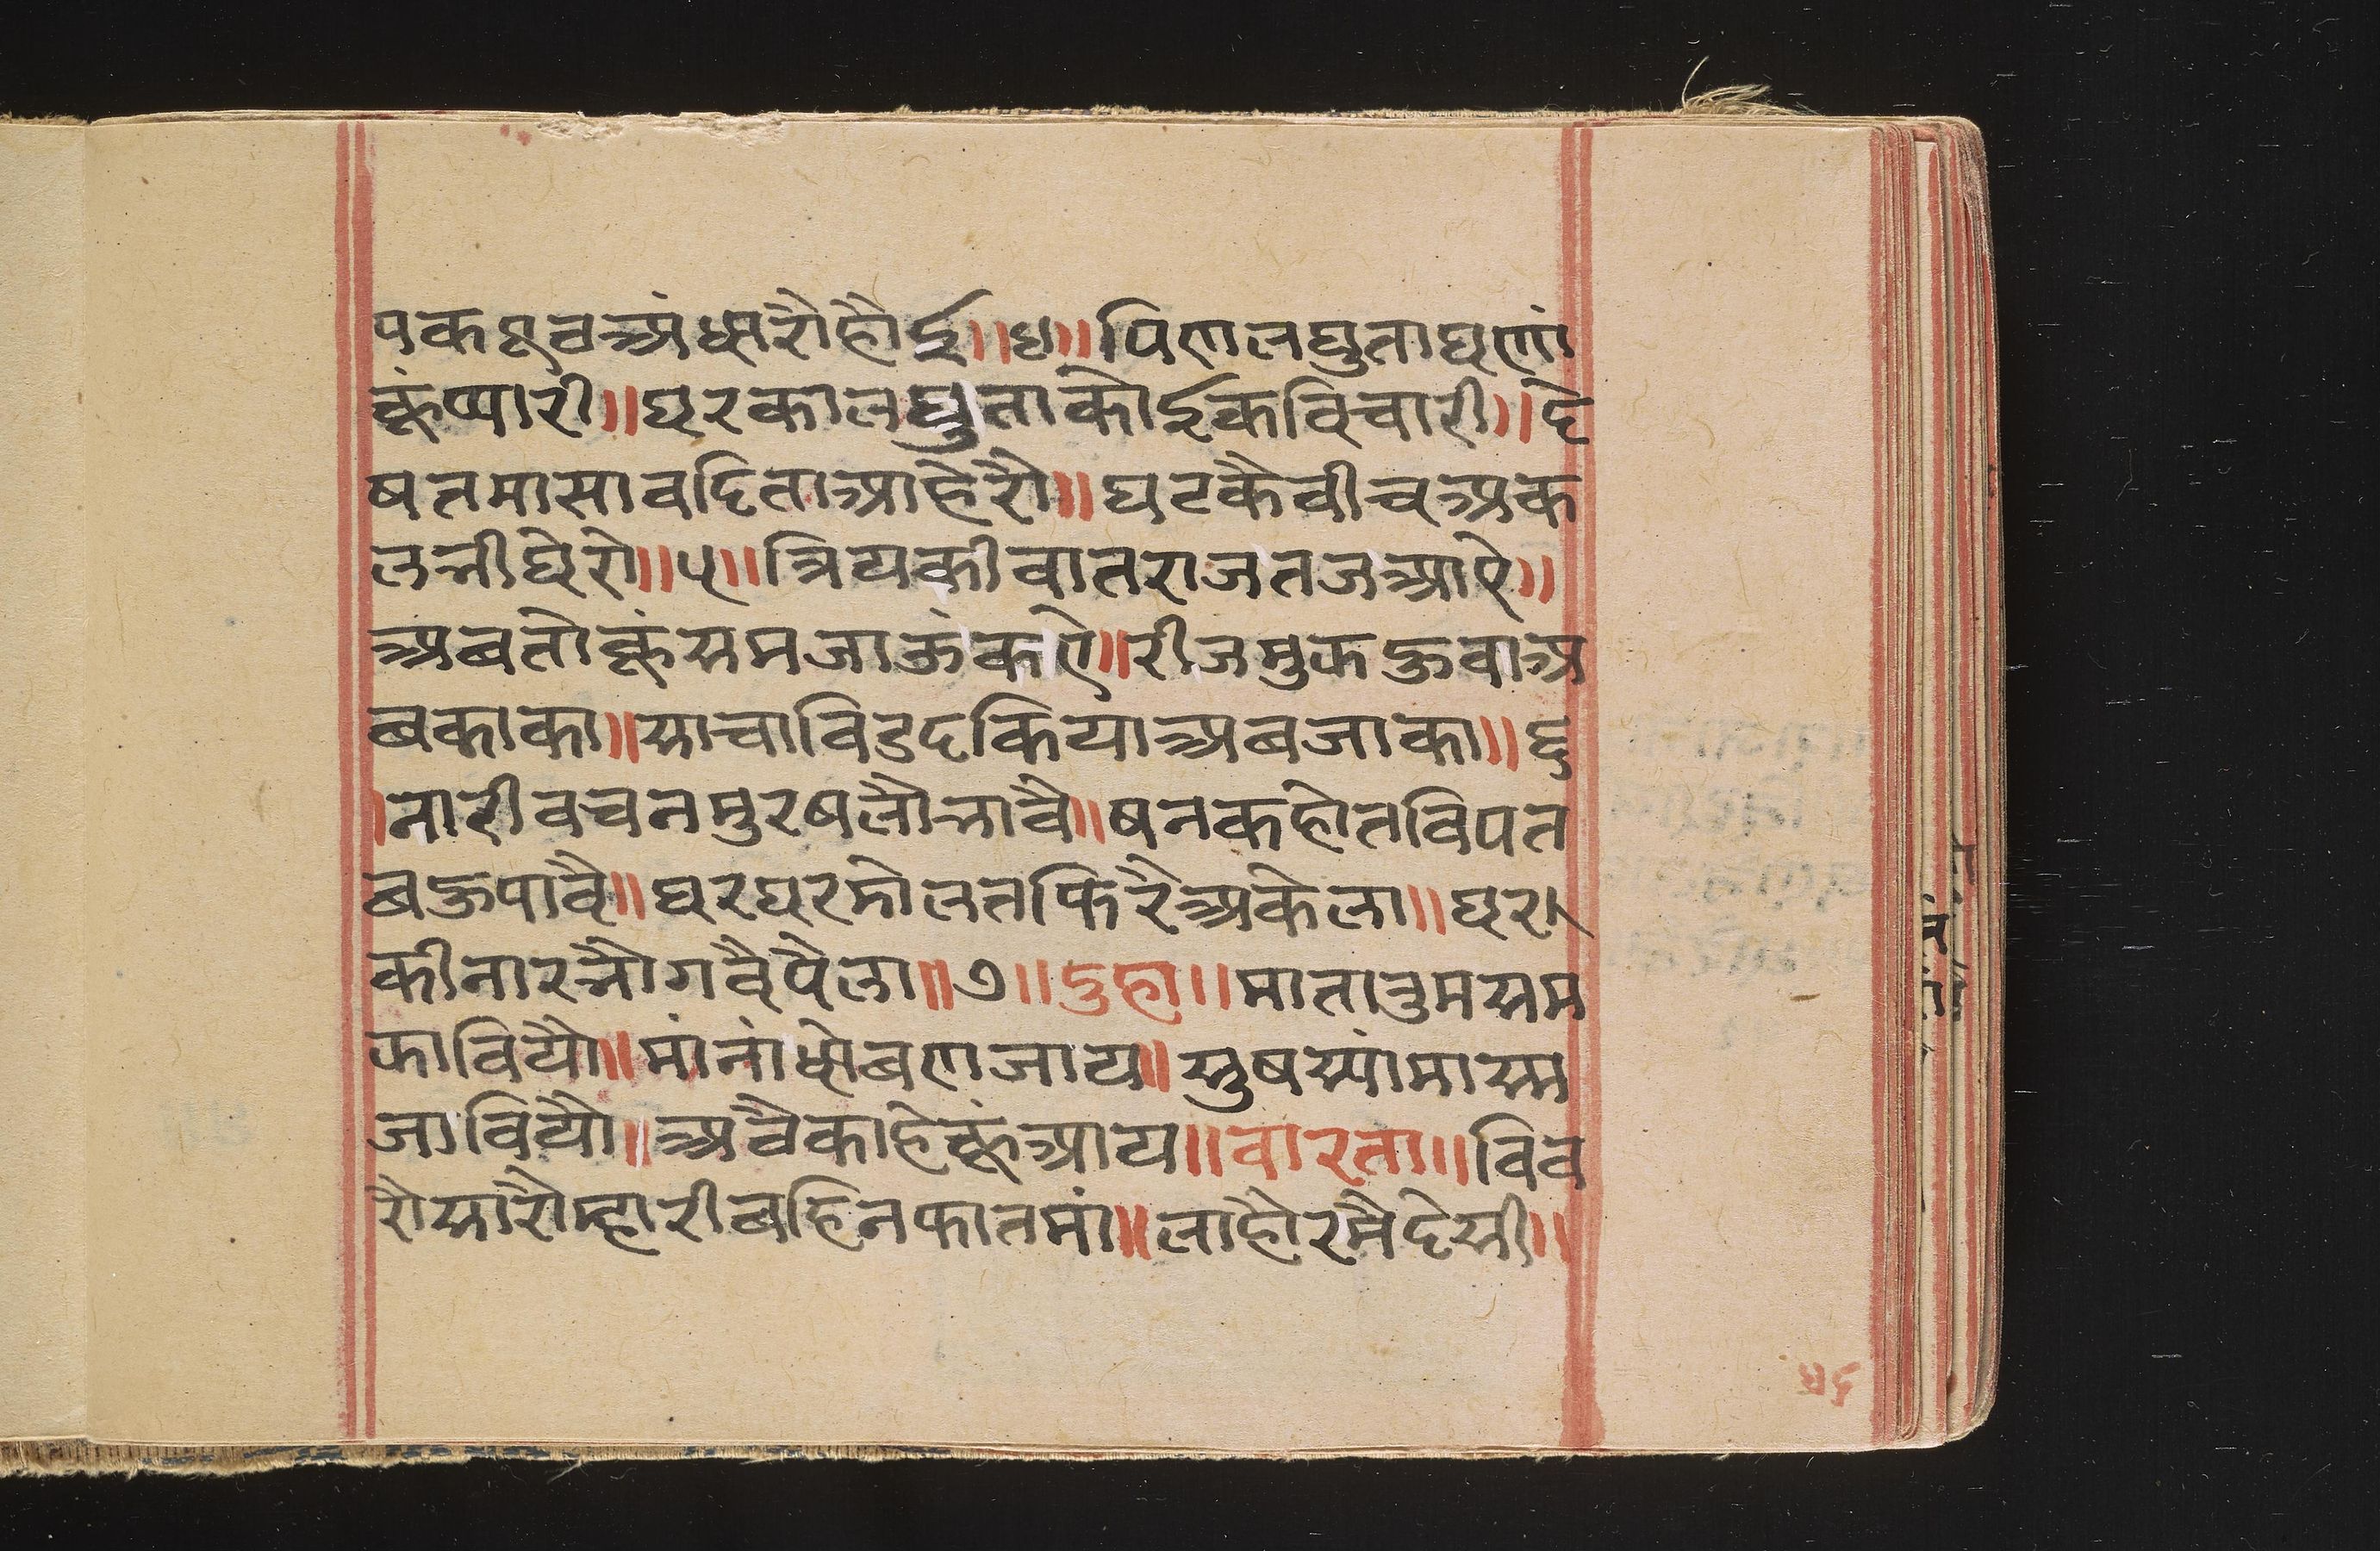 पकछवअंधारौहौई॥४॥पिणलघुताघणां
कूंप्यारी॥घरकालघुताकोईकविचारी॥दे
षतमासावदिताआहेरौ॥घटकैवीचअक
लनीघेरो॥५॥त्रियकीवातराजतजआऐ॥
अबतोकूंसमजाऊंकऐ॥रीजमुकक्तवाअ
बकाका॥साचाविडदकियाअबजाका॥६
॥नारीवचनमुरषलौनावै॥षनकहोतविपत
बक्तपावै॥घरघरमोलतफिरैअकेला॥घर।
कीनारनौगवैपैला॥७॥दुहा॥मातातुमसम
कावियौ॥मांनांधोबणजाय॥सुषस्यांमास्मा
जावियौ॥अवैकाहेकूंआय॥वारता॥विव
रौसारौम्हारीबहिनफातमां॥लाहौरमैदेसी॥
५६